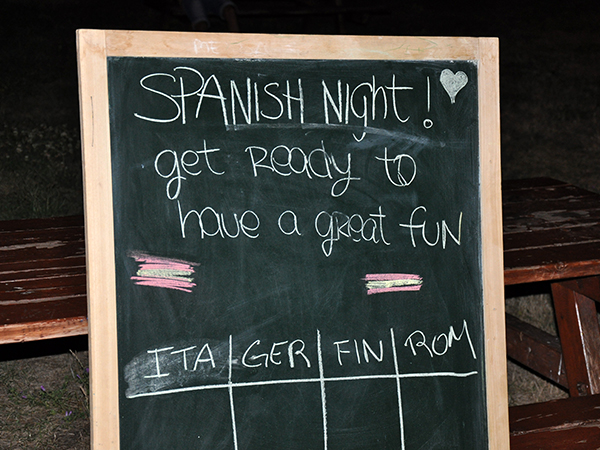 SPANISH Night!
get Ready to
have a great fun
ITA GER FIN ROM